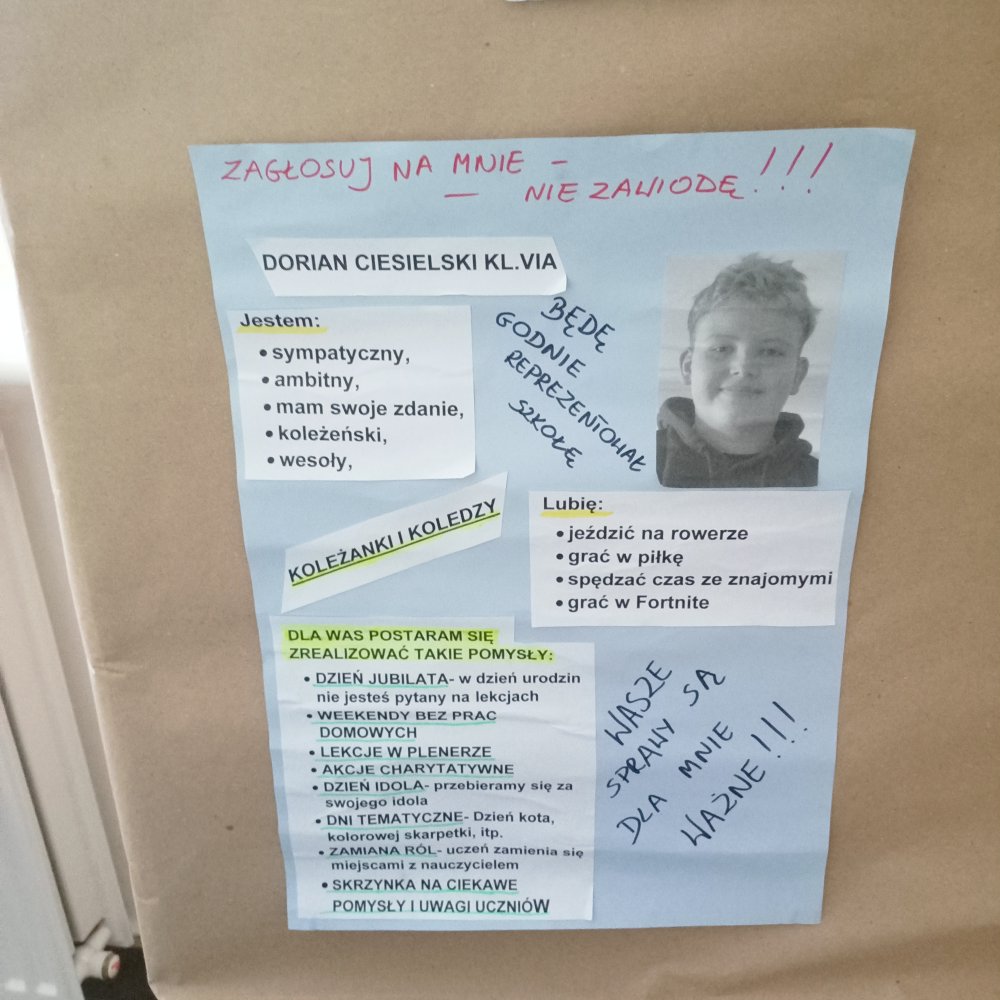 ZAGŁOSUJ NA MNIE -
— NIE ZAWIODĘ!!!
DORIAN CIESIELSKI KL.VIA
Jestem:
• sympatyczny,
• ambitny,
• mam swoje zdanie,
• koleżeński,
• wesoły,
BĘDĘ
GODNIE
REPREZENTOWAŁ
SZKOŁĘ
KOLEŻANKI I KOLEDZY
Lubię:
• jeździć na rowerze
• grać w piłkę
• spędzać czas ze znajomymi
• grać w Fortnite
DLA WAS POSTARAM SIĘ
ZREALIZOWAĆ TAKIE POMYSŁY:
• DZIEŃ JUBILATA- w dzień urodzin
nie jesteś pytany na lekcjach
• WEEKENDY BEZ PRAC
DOMOWYCH
• LEKCJE W PLENERZE
• AKCJE CHARYTATYWNE
• DZIEŃ IDOLA- przebieramy się za
swojego idola
• DNI TEMATYCZNE- Dzień kota,
kolorowej skarpetki, itp.
• ZAMIANA RÓL- uczeń zamienia się
miejscami z nauczycielem
• SKRZYNKA NA CIEKAWE
POMYSŁY I UWAGI UCZNIÓW
WASZE
SPRAWY SĄ
DLA MNIE
WAŻNE!!!